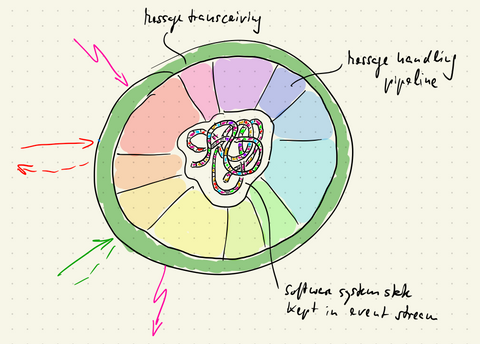 message transceiving
message handling
pipeline
software system state
kept in event stream